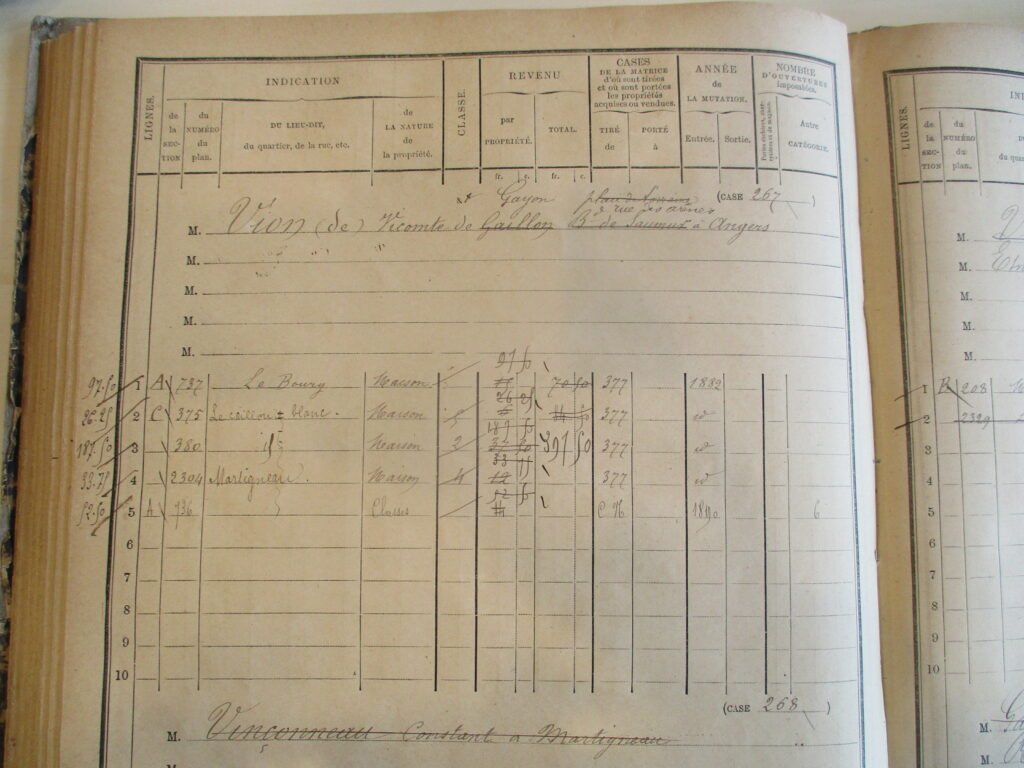 LIGNES.
INDICATION
de la SECTION
du NUMÉRO du plan.
DU LIEU-DIT, du quartier, de la rue, etc.
de LA NATURE de la propriété.
CLASSE.
REVENU
par PROPRIÉTÉ.
TOTAL.
fr. c. fr. c.
CASES DE LA MATRICE d'où sont tirées et où sont portées les propriétés acquises ou vendues.
TIRÉ de
PORTÉ à
ANNÉE de LA MUTATION.
Entrée. Sortie.
NOMBRE D'OUVERTURES imposables.
Autre CATÉGORIE.
(CASE 267 )
Gayon
rue
M. Vion (de) Vicomte de Gaillon de Saumur à Angers
M.
M.
M.
M.
97 50
97.50 1 A 737 Le Bourg Maison 70 50 377 1882
26 25
26.25 2 C 375 Le caillou blanc. Maison 377 id
187 50
187.50 3 380 id Maison 2 37 50 391 50 377 id
33 75
33.75 4 2304 Martigneau. Maison 4 12 377 id
52 50
52.50 5 A 736 C N 1890 6
6
7
8
9
10
(CASE 268 )
M. Vinçonneau Constant a Martigneau
LIGNES.
de la SECTION
du NUMÉRO du plan.
M.
M.
M.
M.
M.
1 B 208
2 2329
3
4
5
6
7
8
9
10
M.
M.